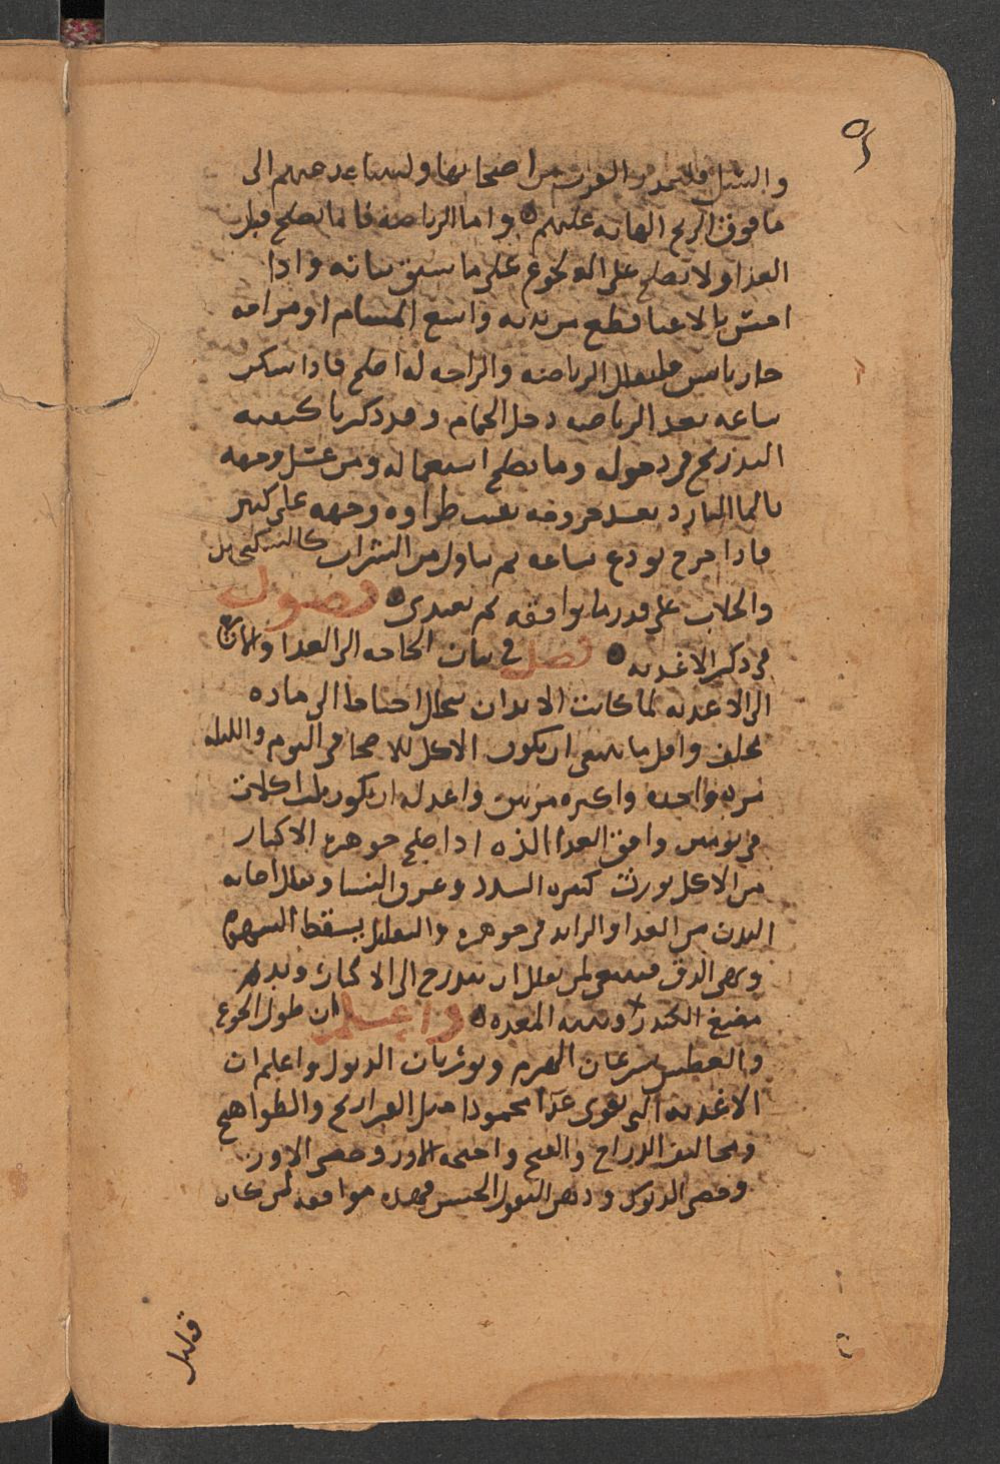 والسل فليحذر القرب من اصحابها وليتباعد عنهم الى
ما فوق الريح الهابه عليهم واما الرياضه فانما تصلح قبل
الغدا ولا تصلح على الجوع على ما سبق بيانه واذا
احس بالاعيا قطع من بدنه واسع المسام او مزاجه
حار يابس فليقلل الرياضه والراحه له اصلح فاذا سكن
ساعه بعد الرياضه دخل الحمام وقد ذكرنا كيفيه
التدريج في دخوله وما يصلح استعماله ومن غسل وجهه
بالما البارد بعد خروجه بقيت طراوه وجهه على كبر
فاذا خرج تودع ساعه ثم يناول من الشراب كالسكنجبين
والجلاب على قدر ما يوافقه ثم يتغدى فصول
في ذكر الاغذيه فصل في بيان الحاجه الى الغدا
الى الاغذيه لما كانت الابدان تتحلل احتاجت الى ماده
تخلف واقل ما ينبغي ان يكون الاكل للاصحا في اليوم والليله
مره واحده واكثره مرتين واعدله ان يكون ثلث اكلات
في يومين واوفق الغدا الذه اذا صلح جوهره الاكثار
من الاكل يورث كثره السدد وعرق النسا وتقليل
البدن من الغدا والزايد في جوهره والتقليل يسقط الشهوه
فينبغي لمن يقلل ان يتدرج الى الاكثار
مضغ الكندر المعده واعلم ان طول الجوع
والعطش يسرعان الهرم ويورثان الذبول واعلم ان
الاغذيه التي تغذي غذا محمودا مثل الفراريج والطواهيج
الدراج والقبج واجنحه الاوز وخصى الاوز
وخصى الديوك ومن البقول الخس فهذه موافقه لمن كان
قليل